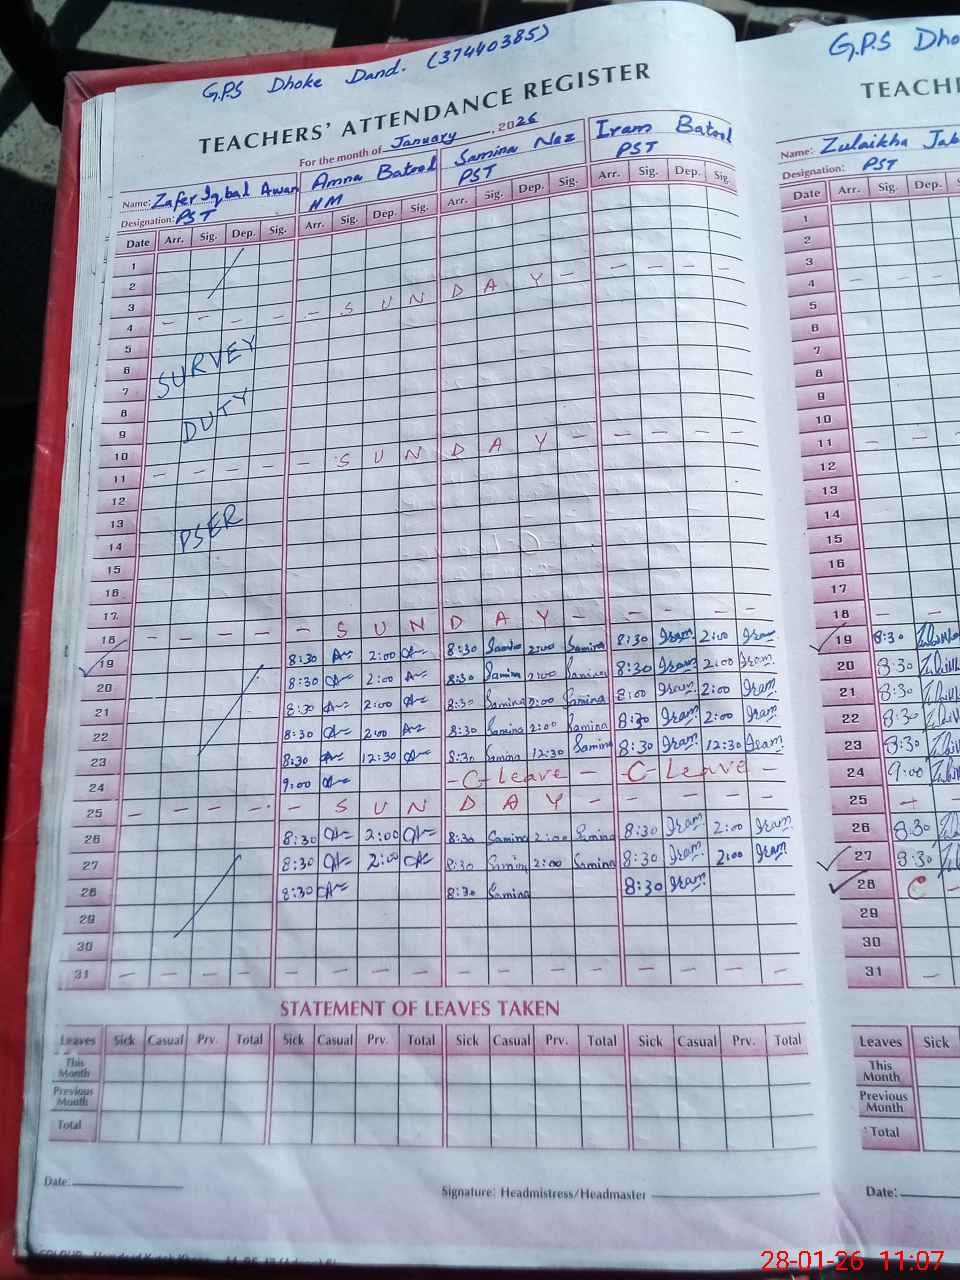 G.P.S Dhoke Dand. (37440385)
TEACHERS' ATTENDANCE REGISTER
For the month of January, 2026
Name: Zafer Iqbal Awan Amna Batool Samina Naz Iram Batool
Designation: PST HM PST PST
Date Arr. Sig. Dep. Sig. Arr. Sig. Dep. Sig. Arr. Sig. Dep. Sig. Arr. Sig. Dep. Sig.
1
2
3
4 - - - - - S U N D A Y - - - - -
5
6 SURVEY
7
8 DUTY
9
10
11 - - - - - S U N D A Y - - - - -
12
13
14 PSER
15
16
17
18 - - - - - S U N D A Y - - - - -
19 8:30 2:00 8:30 Samina 2:00 Samina 8:30 Iram 2:00 Iram
20 8:30 2:00 8:30 Samina 2:00 Samina 8:30 Iram 2:00 Iram
21 8:30 2:00 8:30 Samina 2:00 Samina 8:00 Iram 2:00 Iram
22 8:30 2:00 8:30 Samina 2:00 Samina 8:30 Iram 2:00 Iram
23 8:30 12:30 8:30 Samina 12:30 Samina 8:30 Iram 12:30 Iram
24 9:00 -C-Leave - -C-Leave -
25 - - - - - S U N D A Y - - - - -
26 8:30 2:00 8:30 Samina 2:00 Samina 8:30 Iram 2:00 Iram
27 8:30 2:00 8:30 Samina 2:00 Samina 8:30 Iram 2:00 Iram
28 8:30 8:30 Samina 8:30 Iram
29
30
31 - - - - - - - - - - - - - - - -
STATEMENT OF LEAVES TAKEN
Leaves Sick Casual Prv. Total Sick Casual Prv. Total Sick Casual Prv. Total Sick Casual Prv. Total
This Month
Previous Month
Total
Date:
Signature: Headmistress/Headmaster
G.P.S Dho
TEACHE
Name: Zulaikha Jab
Designation: PST
Date Arr. Sig. Dep. S
1
2
3
4 - -
5
6
7
8
9
10
11 - -
12
13
14
15
16
17
18 - -
19 8:30
20 8:30
21 8:30
22 8:30
23 8:30
24 9:00
25 - -
26 8:30
27 8:30
28 C -
29
30
31 -
Leaves Sick
This Month
Previous Month
Total
Date:
28-01-26 11:07